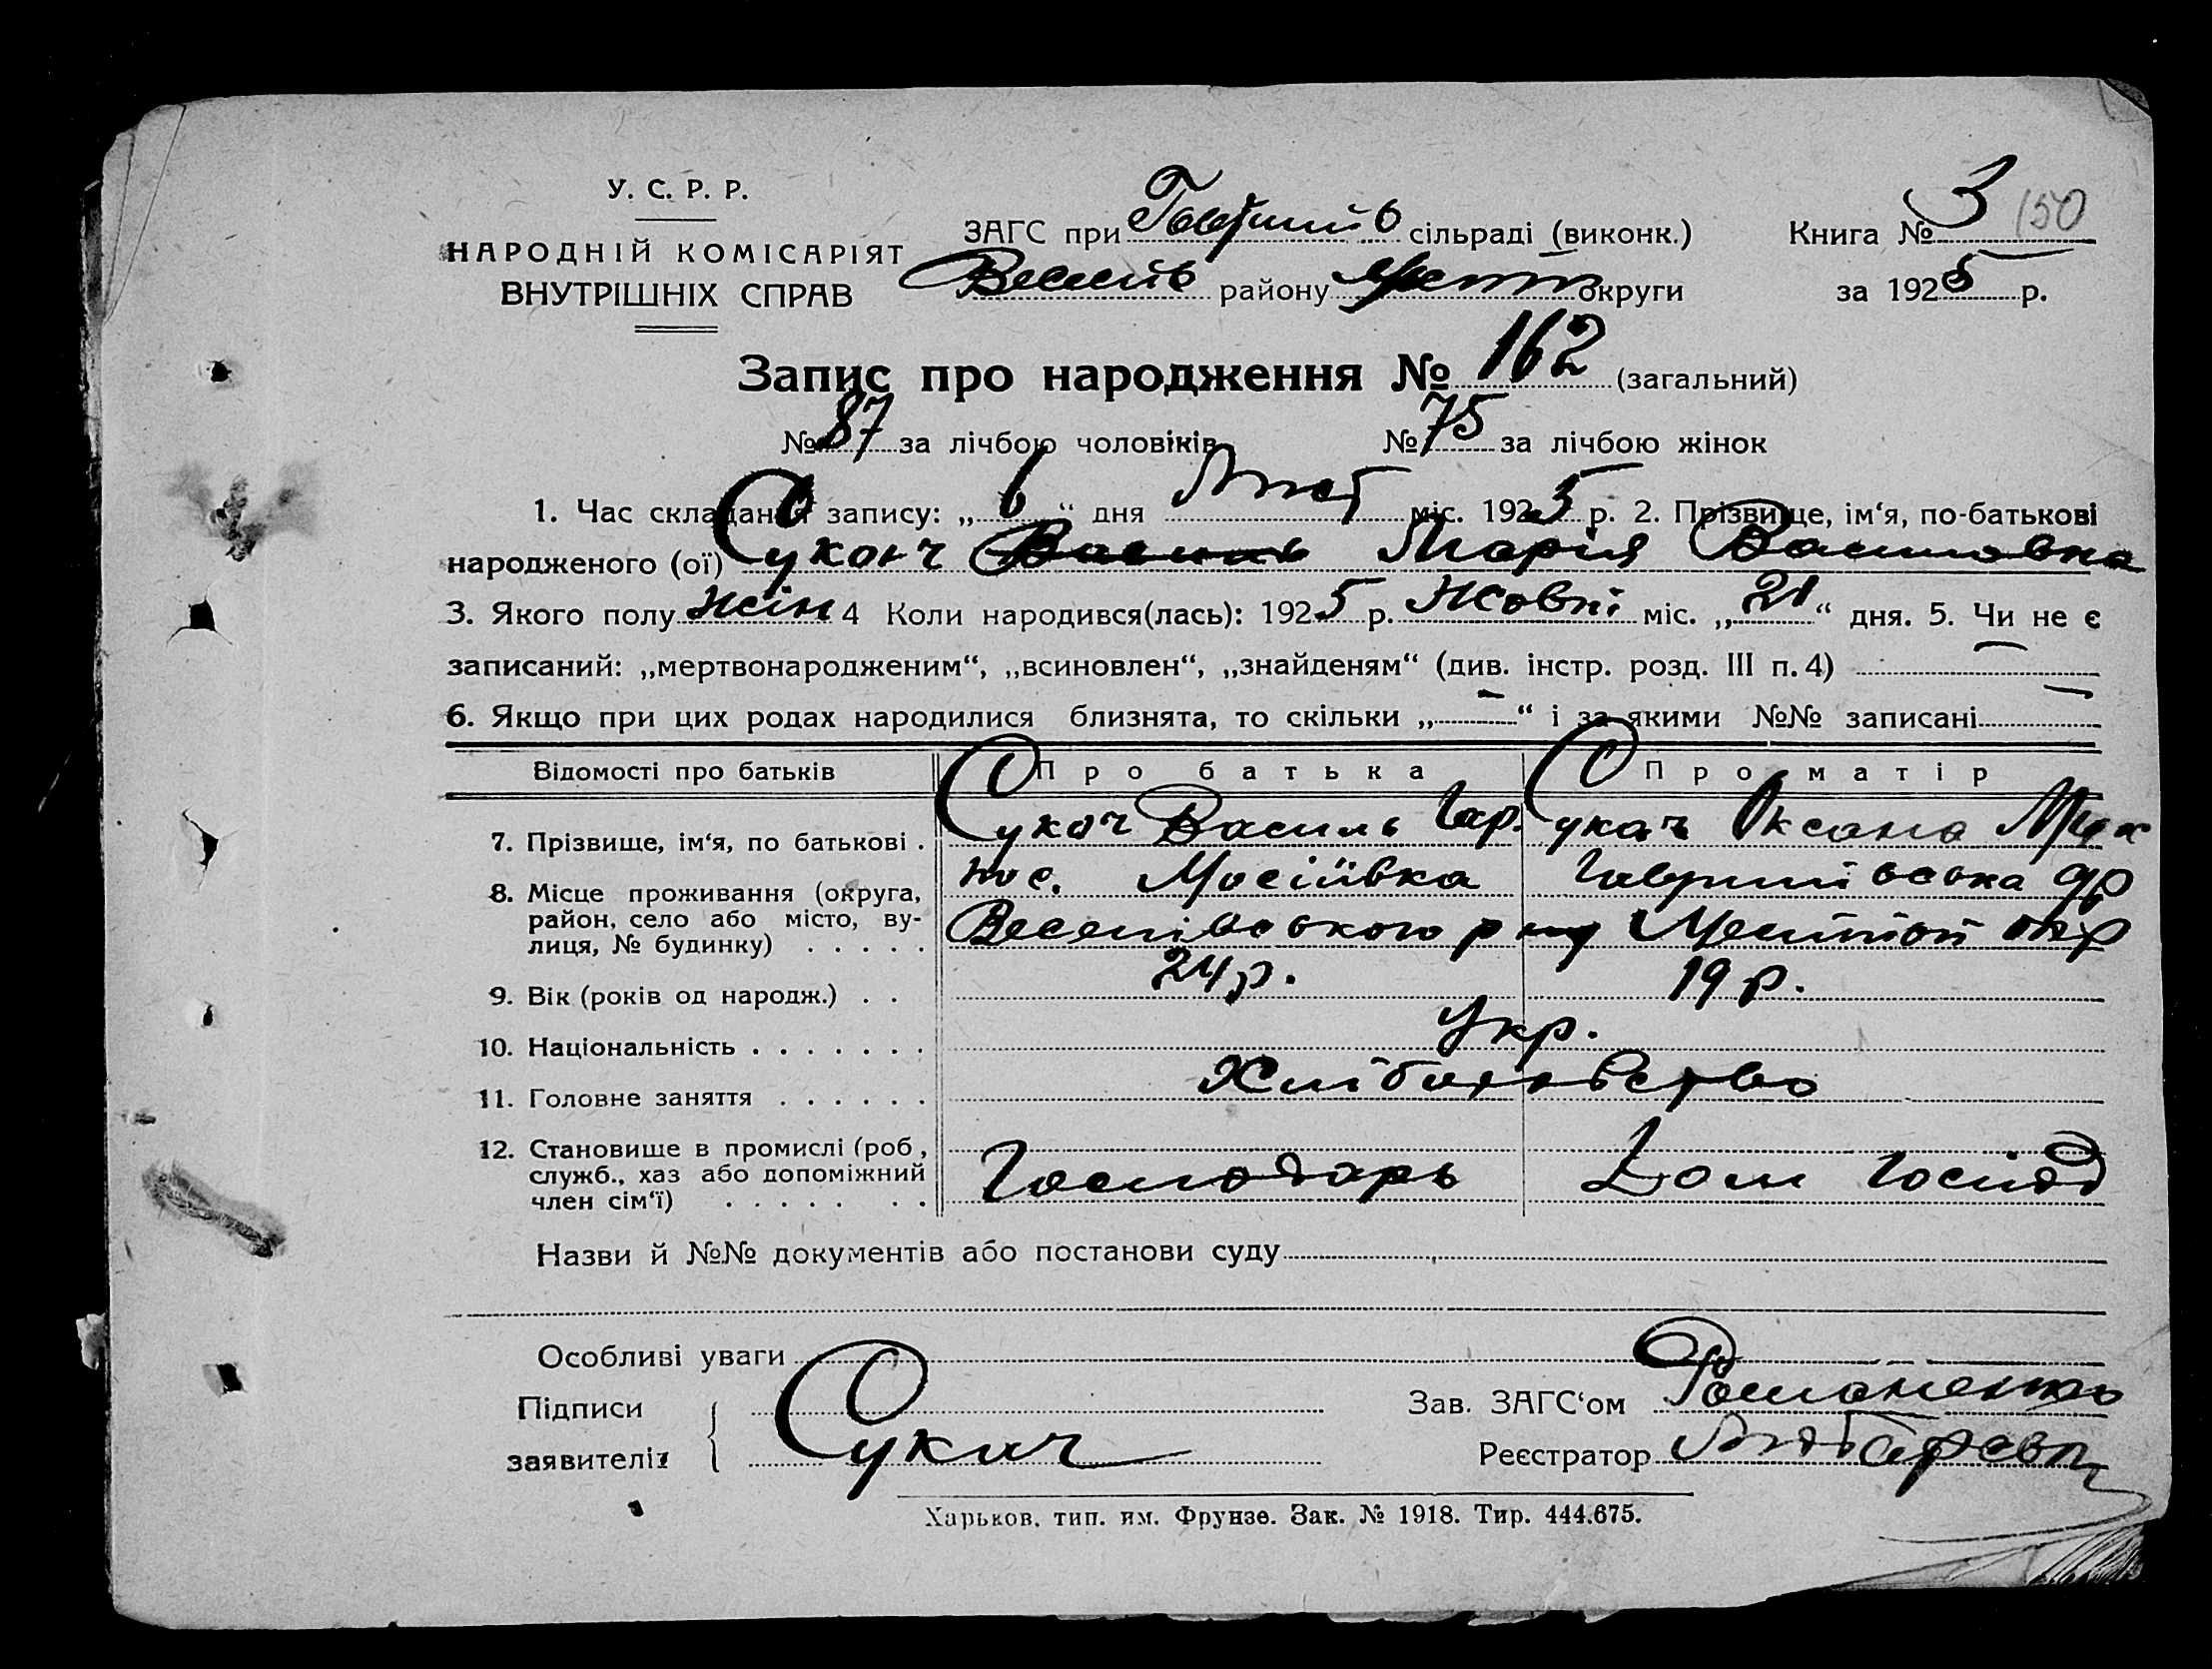 У. С. Р. Р.
НАРОДНІЙ КОМІСАРІЯТ
ВНУТРІШНІХ СПРАВ
ЗАГС при сільраді (виконк.)
Веселів району округи
Книга № 3 150
за 1925 р.
Запис про народження № 162 (загальний)
№ 87 за лічбою чоловіків № 75 за лічбою жінок
1. Час складання запису: „ 6 “ дня Лист міс. 1925 р. 2. Прізвище, ім‘я, по-батькові
народженого (ої) Сукач Василь Марія Василовна
3. Якого полу жін 4 Коли народився(лась): 1925 р. Жовт міс. „ 21 “ дня. 5. Чи не є
записаний: „мертвонародженим“, „всиновлен“, „знайденям“ (див. інстр. розд. III п. 4) —
6. Якщо при цих родах народилися близнята, то скільки „ — “ і за якими №№ записані —
Відомості про батьків Про батька Про матір
7. Прізвище, ім‘я, по батькові . Сукач Василь Гар. Сукач Оксана
8. Місце проживання (округа, пос. Мосіївка Гаврилівська
район, село або місто, ву- Веселівського р-ну Мелітоп окр
лиця, № будинку) . . . . .
9. Вік (років од народж.) . . 24 р. 19 р.
10. Національність . . . . . . . Укр.
11. Головне заняття . . . . . . Хліборобство
12. Становище в промислі (роб,
служб., хаз або допоміжний Господарь Дом госпід
член сім‘ї) . . . . . . .
Назви й №№ документів або постанови суду
Особливі уваги
Підписи
заявителіз Сукач
Зав. ЗАГС‘ом Романенко
Реєстратор
Харьков, тип. им. Фрунзе. Зак. № 1918. Тир. 444.675.